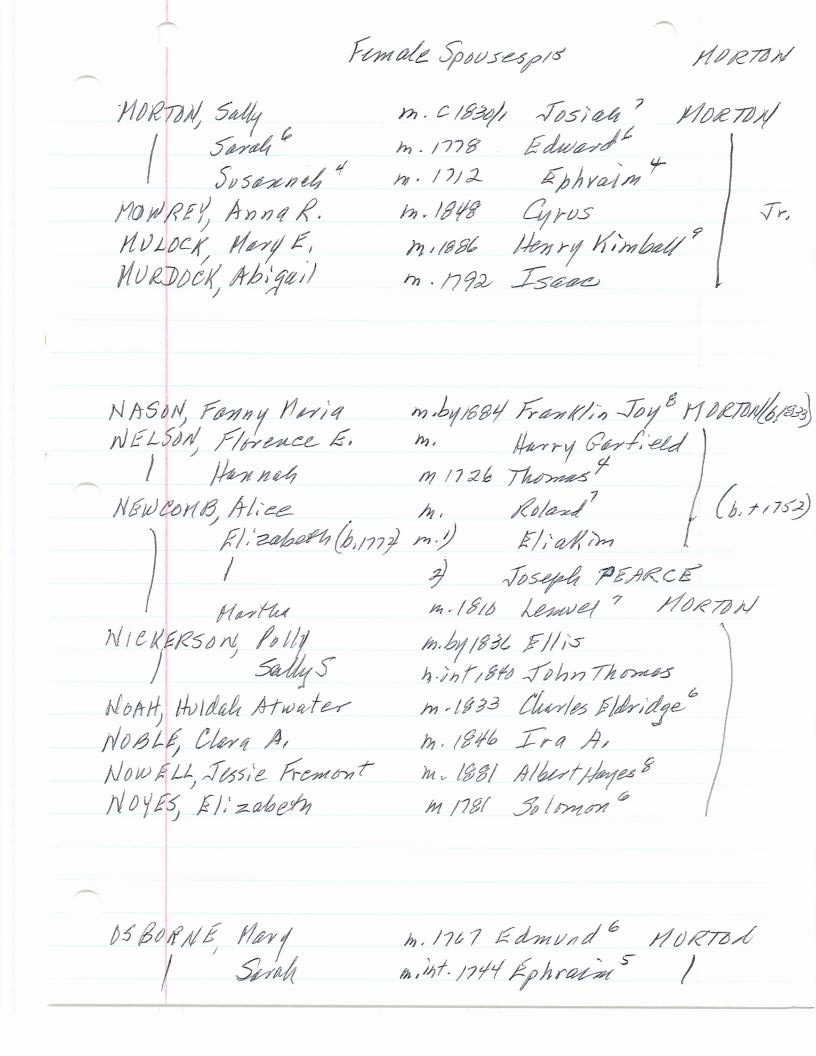 Female Spouses p15 MORTON
MORTON, Sally m. c 1830/1 Josiah 7 MORTON
Sarah 6 m. 1778 Edward 6
Susannah 4 m. 1712 Ephraim 4
MOWREY, Anna R. m. 1848 Cyrus Jr.
MULOCK, Mary E. m. 1886 Henry Kimball 9
MURDOCK, Abigail m. 1792 Isaac
NASON, Fanny Maria m. by 1884 Franklin Joy 8 MORTON (b. 1833)
NELSON, Florence E. m. Harry Garfield
Hannah m 1726 Thomas 4
NEWCOMB, Alice m. Roland 7 (b. + 1752)
Elizabeth (b. 1777) m. 1) Eliakim
2) Joseph PEARCE
Martha m. 1810 Lemuel 7 MORTON
NICKERSON, Polly m. by 1836 Ellis
Sally S m. int. 1840 John Thomas
NOAH, Huldah Atwater m. 1833 Charles Eldridge 6
NOBLE, Clara A. m. 1846 Ira A.
NOWELL, Jessie Fremont m. 1881 Albert Hayes 8
NOYES, Elizabeth m 1781 Solomon 6
OSBORNE, Mary m. 1767 Edmund 6 MORTON
Sarah m. int. 1744 Ephraim 5